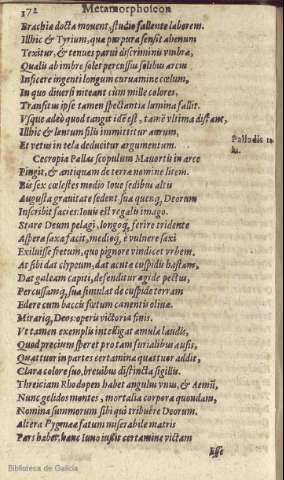 172 Metamorphoseon
Brachia docta mouent, studio fallente laborem.
Illhic & Tyrium, quæ purpura sensit ahenum
Texitur, & tenues parui discriminis vmbræ,
Qualis ab imbre solet percussis solibus arcus
Inficere ingenti longum curuamine cœlum,
In quo diuersi niteant cùm mille colores,
Transitus ipse tamen spectantia lumina fallit.
Vsque adeò quod tangit idē est, tamē vltima distant,
Illhic & lentum filis immittitur aurum,
Et vetus in tela deducitur argumentum.
Palladis te
la.
Cecropia Pallas scopulum Mauortis in arce
Pingit, & antiquam de terra nomine litem.
Bis sex cœlestes medio Ioue sedibus altis
Augusta grauitate sedent. sua quenq; Deorum
Inscribit facies: Iouis est regalis imago.
Stare Deum pelagi, longoq; ferire tridente
Aspera saxa facit, medioq; è vulnere saxi
Exiluisse fretum, quo pignore vindicet vrbem.
At sibi dat clypeum, dat acutæ cuspidis hastam,
Dat galeam capiti, defenditur ægide pectus,
Percussamq; sua simulat de cuspide terram
Edere cum baccis fœtum canentis oliuæ.
Mirariq; Deos: operis victoria finis.
Vt tamen exemplis intelligat æmula laudis,
Quod precium speret pro tam furialibus ausis,
Quattuor in partes certamina quattuor addit,
Clara colore suo, breuibus distincta sigillis.
Threiciam Rhodopen habet angulus vnus, & Aemū,
Nunc gelidos montes, mortalia corpora quondam,
Nomina summorum sibi qui tribuêre Deorum.
Altera Pygmææ fatum miserabile matris
Pars habet. hanc Iuno iussit certamine victam
Esse
Biblioteca de Galicia